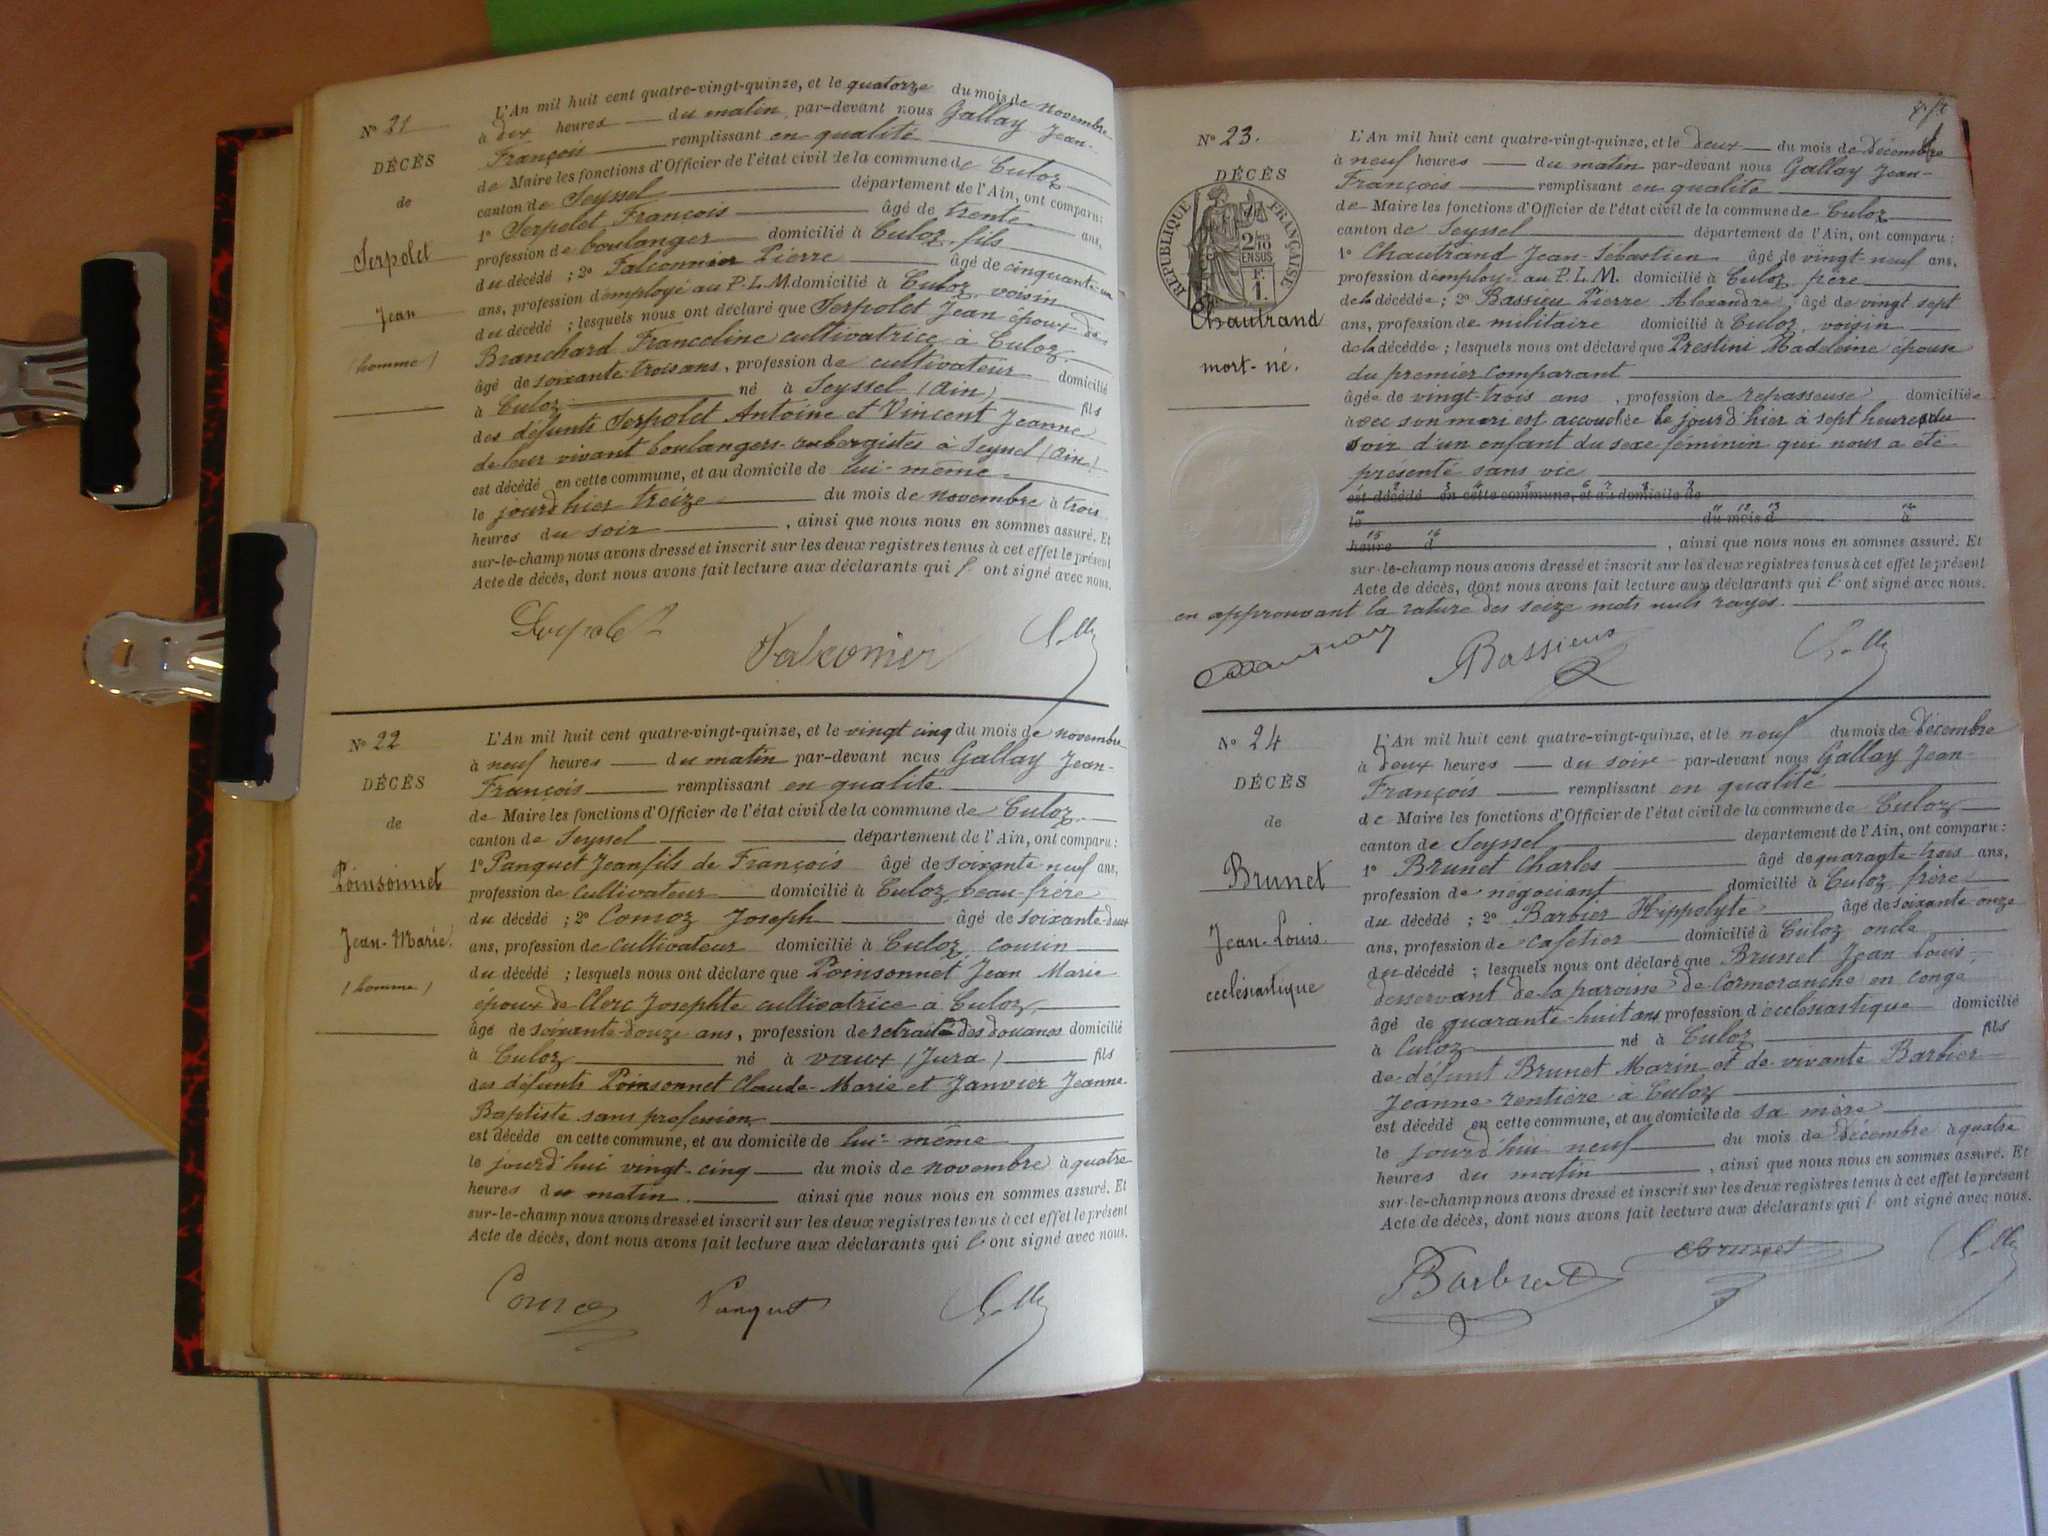 N° 21
DÉCÈS
de
Serpolet
Jean
(homme)
L'An mil huit cent quatre-vingt-quinze, et le quatorze du mois de novembre
à dix heures du matin, par-devant nous Gallay Jean-
François remplissant en qualité
de Maire les fonctions d'Officier de l'état civil de la commune de Culoz
canton de Seyssel département de l'Ain, ont comparu :
1° Serpolet François âgé de trente ans,
profession de boulanger domicilié à Culoz, fils
du décédé ; 2° Falconnier Pierre âgé de cinquante-un
ans, profession d'employé au P.L.M. domicilié à Culoz, voisin
du décédé ; lesquels nous ont déclaré que Serpolet Jean époux de
Branchard Franceline cultivatrice à Culoz
âgé de soixante-trois ans, profession de cultivateur domicilié
à Culoz né à Seyssel (Ain) fils
des défunts Serpolet Antoine et Vincent Jeanne
de leur vivant boulangers-aubergistes à Seyssel (Ain)
est décédé en cette commune, et au domicile de lui-même
le jourd'hier treize du mois de novembre à trois
heures du soir, ainsi que nous nous en sommes assuré. Et
sur-le-champ nous avons dressé et inscrit sur les deux registres tenus à cet effet le présent
Acte de décès, dont nous avons fait lecture aux déclarants qui l'ont signé avec nous.
Serpolet Falconier
N° 22
DÉCÈS
de
Poinsonnet
Jean-Marie.
(homme)
L'An mil huit cent quatre-vingt-quinze, et le vingt cinq du mois de novembre
à neuf heures du matin par-devant nous Gallay Jean-
François remplissant en qualité
de Maire les fonctions d'Officier de l'état civil de la commune de Culoz
canton de Seyssel département de l'Ain, ont comparu :
1° Panquet Jean fils de François âgé de soixante neuf ans,
profession de cultivateur domicilié à Culoz, beau-frère
du décédé ; 2° Comoz Joseph âgé de soixante-deux
ans, profession de cultivateur domicilié à Culoz, cousin
du décédé ; lesquels nous ont déclaré que Poinsonnet Jean Marie
époux de Clerc Josephte cultivatrice à Culoz,
âgé de soixante-douze ans, profession de retraité des douanes domicilié
à Culoz né à Vaux (Jura) fils
des défunts Poinsonnet Claude-Marie et Janvier Jeanne
Baptiste sans profession
est décédé en cette commune, et au domicile de lui-même
le jourd'hui vingt-cinq du mois de novembre à quatre
heures du matin. ainsi que nous nous en sommes assuré. Et
sur-le-champ nous avons dressé et inscrit sur les deux registres tenus à cet effet le présent
Acte de décès, dont nous avons fait lecture aux déclarants qui l'ont signé avec nous.
Comoz Panquet
N° 23.
DÉCÈS
RÉPUBLIQUE FRANÇAISE
2/10 EN SUS
F. 1.
Chautrand
mort-né.
L'An mil huit cent quatre-vingt-quinze, et le deux du mois de Décembre
à neuf heures du matin par-devant nous Gallay Jean-
François remplissant en qualité
de Maire les fonctions d'Officier de l'état civil de la commune de Culoz
canton de Seyssel département de l'Ain, ont comparu :
1° Chautrand Jean-Sébastien âgé de vingt-neuf ans,
profession d'employé au P.L.M. domicilié à Culoz, père
de la décédée ; 2° Bassieu Pierre Alexandre, âgé de vingt sept
ans, profession de militaire domicilié à Culoz, voisin
de la décédée ; lesquels nous ont déclaré que Prestini Madeleine épouse
du premier comparant
âgée de vingt-trois ans, profession de repasseuse domiciliée
avec son mari est accouchée le jourd'hier à sept heures du
soir d'un enfant du sexe féminin qui nous a été
présenté sans vie
est décédé en cette commune, et au domicile de
le du mois d à
heure d, ainsi que nous nous en sommes assuré. Et
sur-le-champ nous avons dressé et inscrit sur les deux registres tenus à cet effet le présent
Acte de décès, dont nous avons fait lecture aux déclarants qui l'ont signé avec nous.
en approuvant la rature des seize mots nuls rayés.
Bassieux
N° 24
DÉCÈS
de
Brunet
Jean-Louis.
ecclésiastique
L'An mil huit cent quatre-vingt-quinze, et le neuf du mois de Décembre
à deux heures du soir par-devant nous Gallay Jean-
François remplissant en qualité
de Maire les fonctions d'Officier de l'état civil de la commune de Culoz
canton de Seyssel département de l'Ain, ont comparu :
1° Brunet Charles âgé de quarante-trois ans,
profession de négociant domicilié à Culoz, frère
du décédé ; 2° Barbier Hippolyte âgé de soixante onze
ans, profession de cafetier domicilié à Culoz, oncle
du décédé ; lesquels nous ont déclaré que Brunet Jean Louis,
desservant de la paroisse de Cormoranche en congé
âgé de quarante-huit ans, profession d'ecclésiastique domicilié
à Culoz né à Culoz fils
de défunt Brunet Marin et de vivante Barbier
Jeanne rentière à Culoz
est décédé en cette commune, et au domicile de sa mère
le jourd'hui neuf du mois de décembre à quatre
heures du matin, ainsi que nous nous en sommes assuré. Et
sur-le-champ nous avons dressé et inscrit sur les deux registres tenus à cet effet le présent
Acte de décès, dont nous avons fait lecture aux déclarants qui l'ont signé avec nous.
Brunet